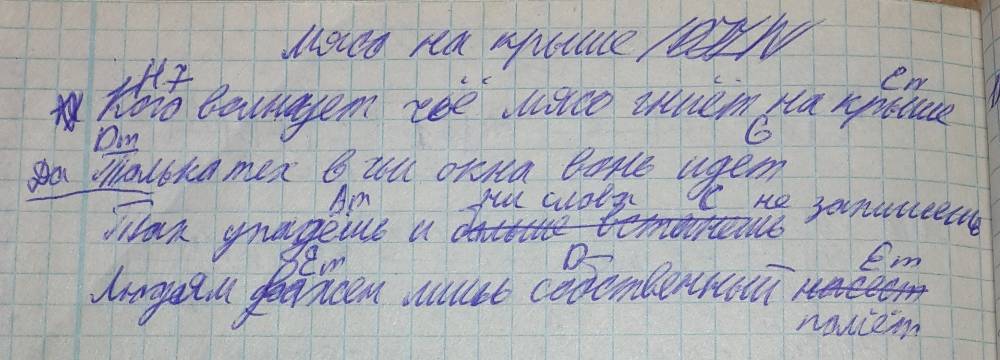 мясо на крыше
H7 Em
Кого волнует чьё мясо гниёт на крыше
Dm G
Да Только тех в чьи окна вонь идет
Am ни слова C не запишешь
Так упадёшь и больше встанешь
Em D Em
Людям важен лишь собственный насест
полёт